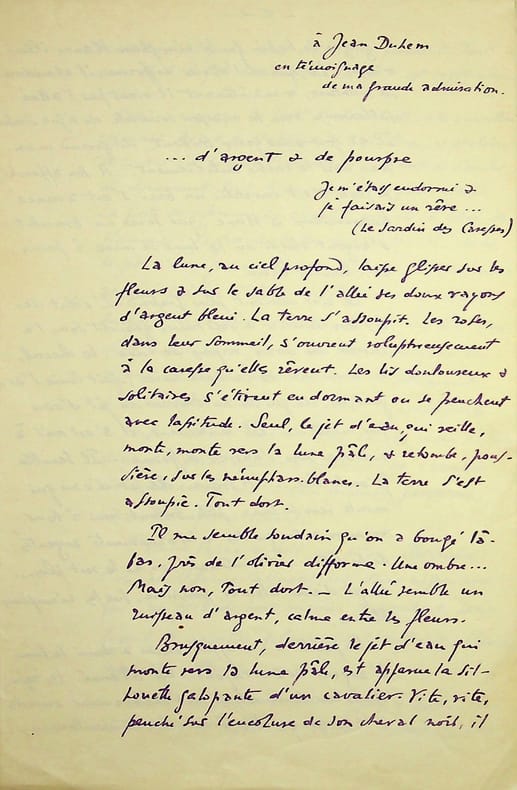 à Jean Duhem
en témoignage
de ma grande admiration.
... d'argent & de pourpre
Je m'étais endormi &
je faisais un rêve ...
(Le Jardin des Caresses)
La lune, au ciel profond, laisse glisser sur les
fleurs & sur le sable de l'allée ses doux rayons
d'argent bleui. La terre s'assoupit. Les roses,
dans leur sommeil, s'ouvrent voluptueusement
à la caresse qu'elles rêvent. Les lis douloureux &
solitaires s'étirent en dormant ou se penchent
avec lassitude. Seul, le jet d'eau, qui veille,
monte, monte vers la lune pâle, & retombe, pous-
sière, sur les nénuphars blancs. La terre s'est
assoupie. Tout dort.
Il me semble soudain qu'on a bougé là-
bas, près de l'olivier difforme. Une ombre...
Mais non, Tout dort. — L'allée semble un
ruisseau d'argent, calme entre les fleurs.
Brusquement, derrière le jet d'eau qui
monte vers la lune pâle, est apparue la sil-
houette galopante d'un cavalier. Vite, vite,
penché sur l'encolure de son cheval noir, il